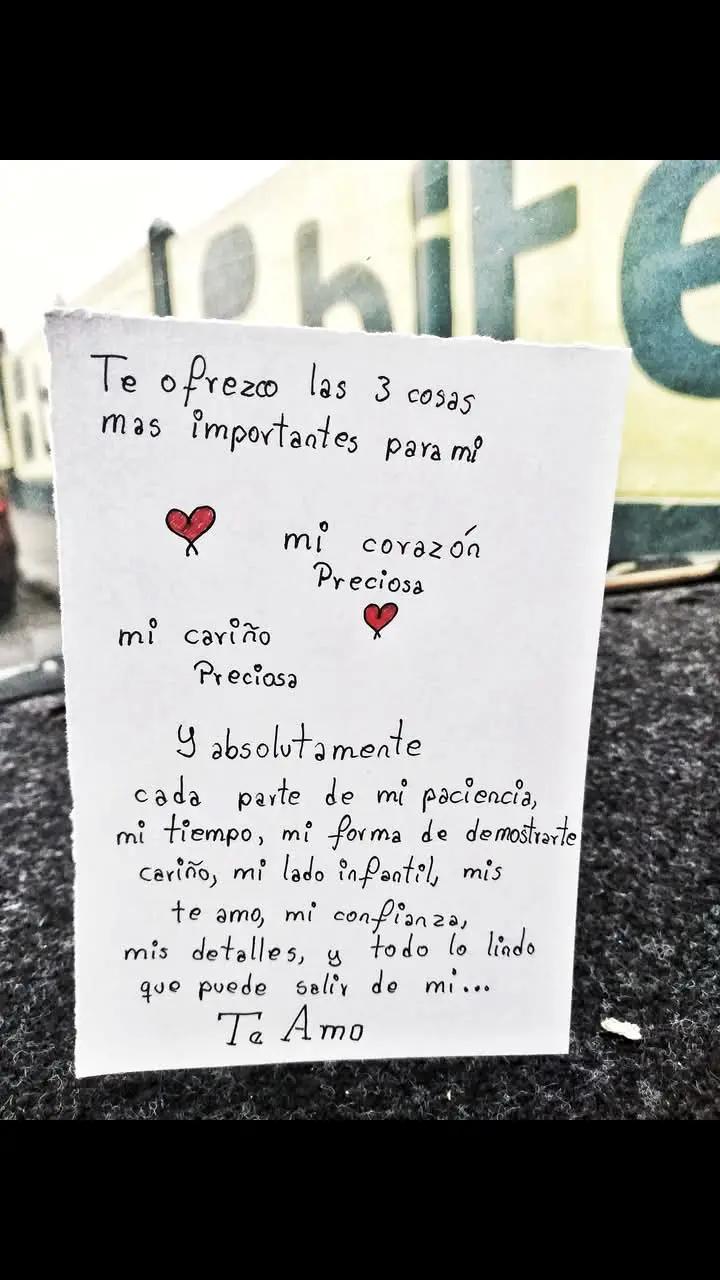 Te ofrezco las 3 cosas
mas importantes para mi
mi corazón
Preciosa
mi cariño
Preciosa
Y absolutamente
cada parte de mi paciencia,
mi tiempo, mi forma de demostrarte
cariño, mi lado infantil, mis
te amo, mi confianza,
mis detalles, y todo lo lindo
que puede salir de mi...
Te Amo